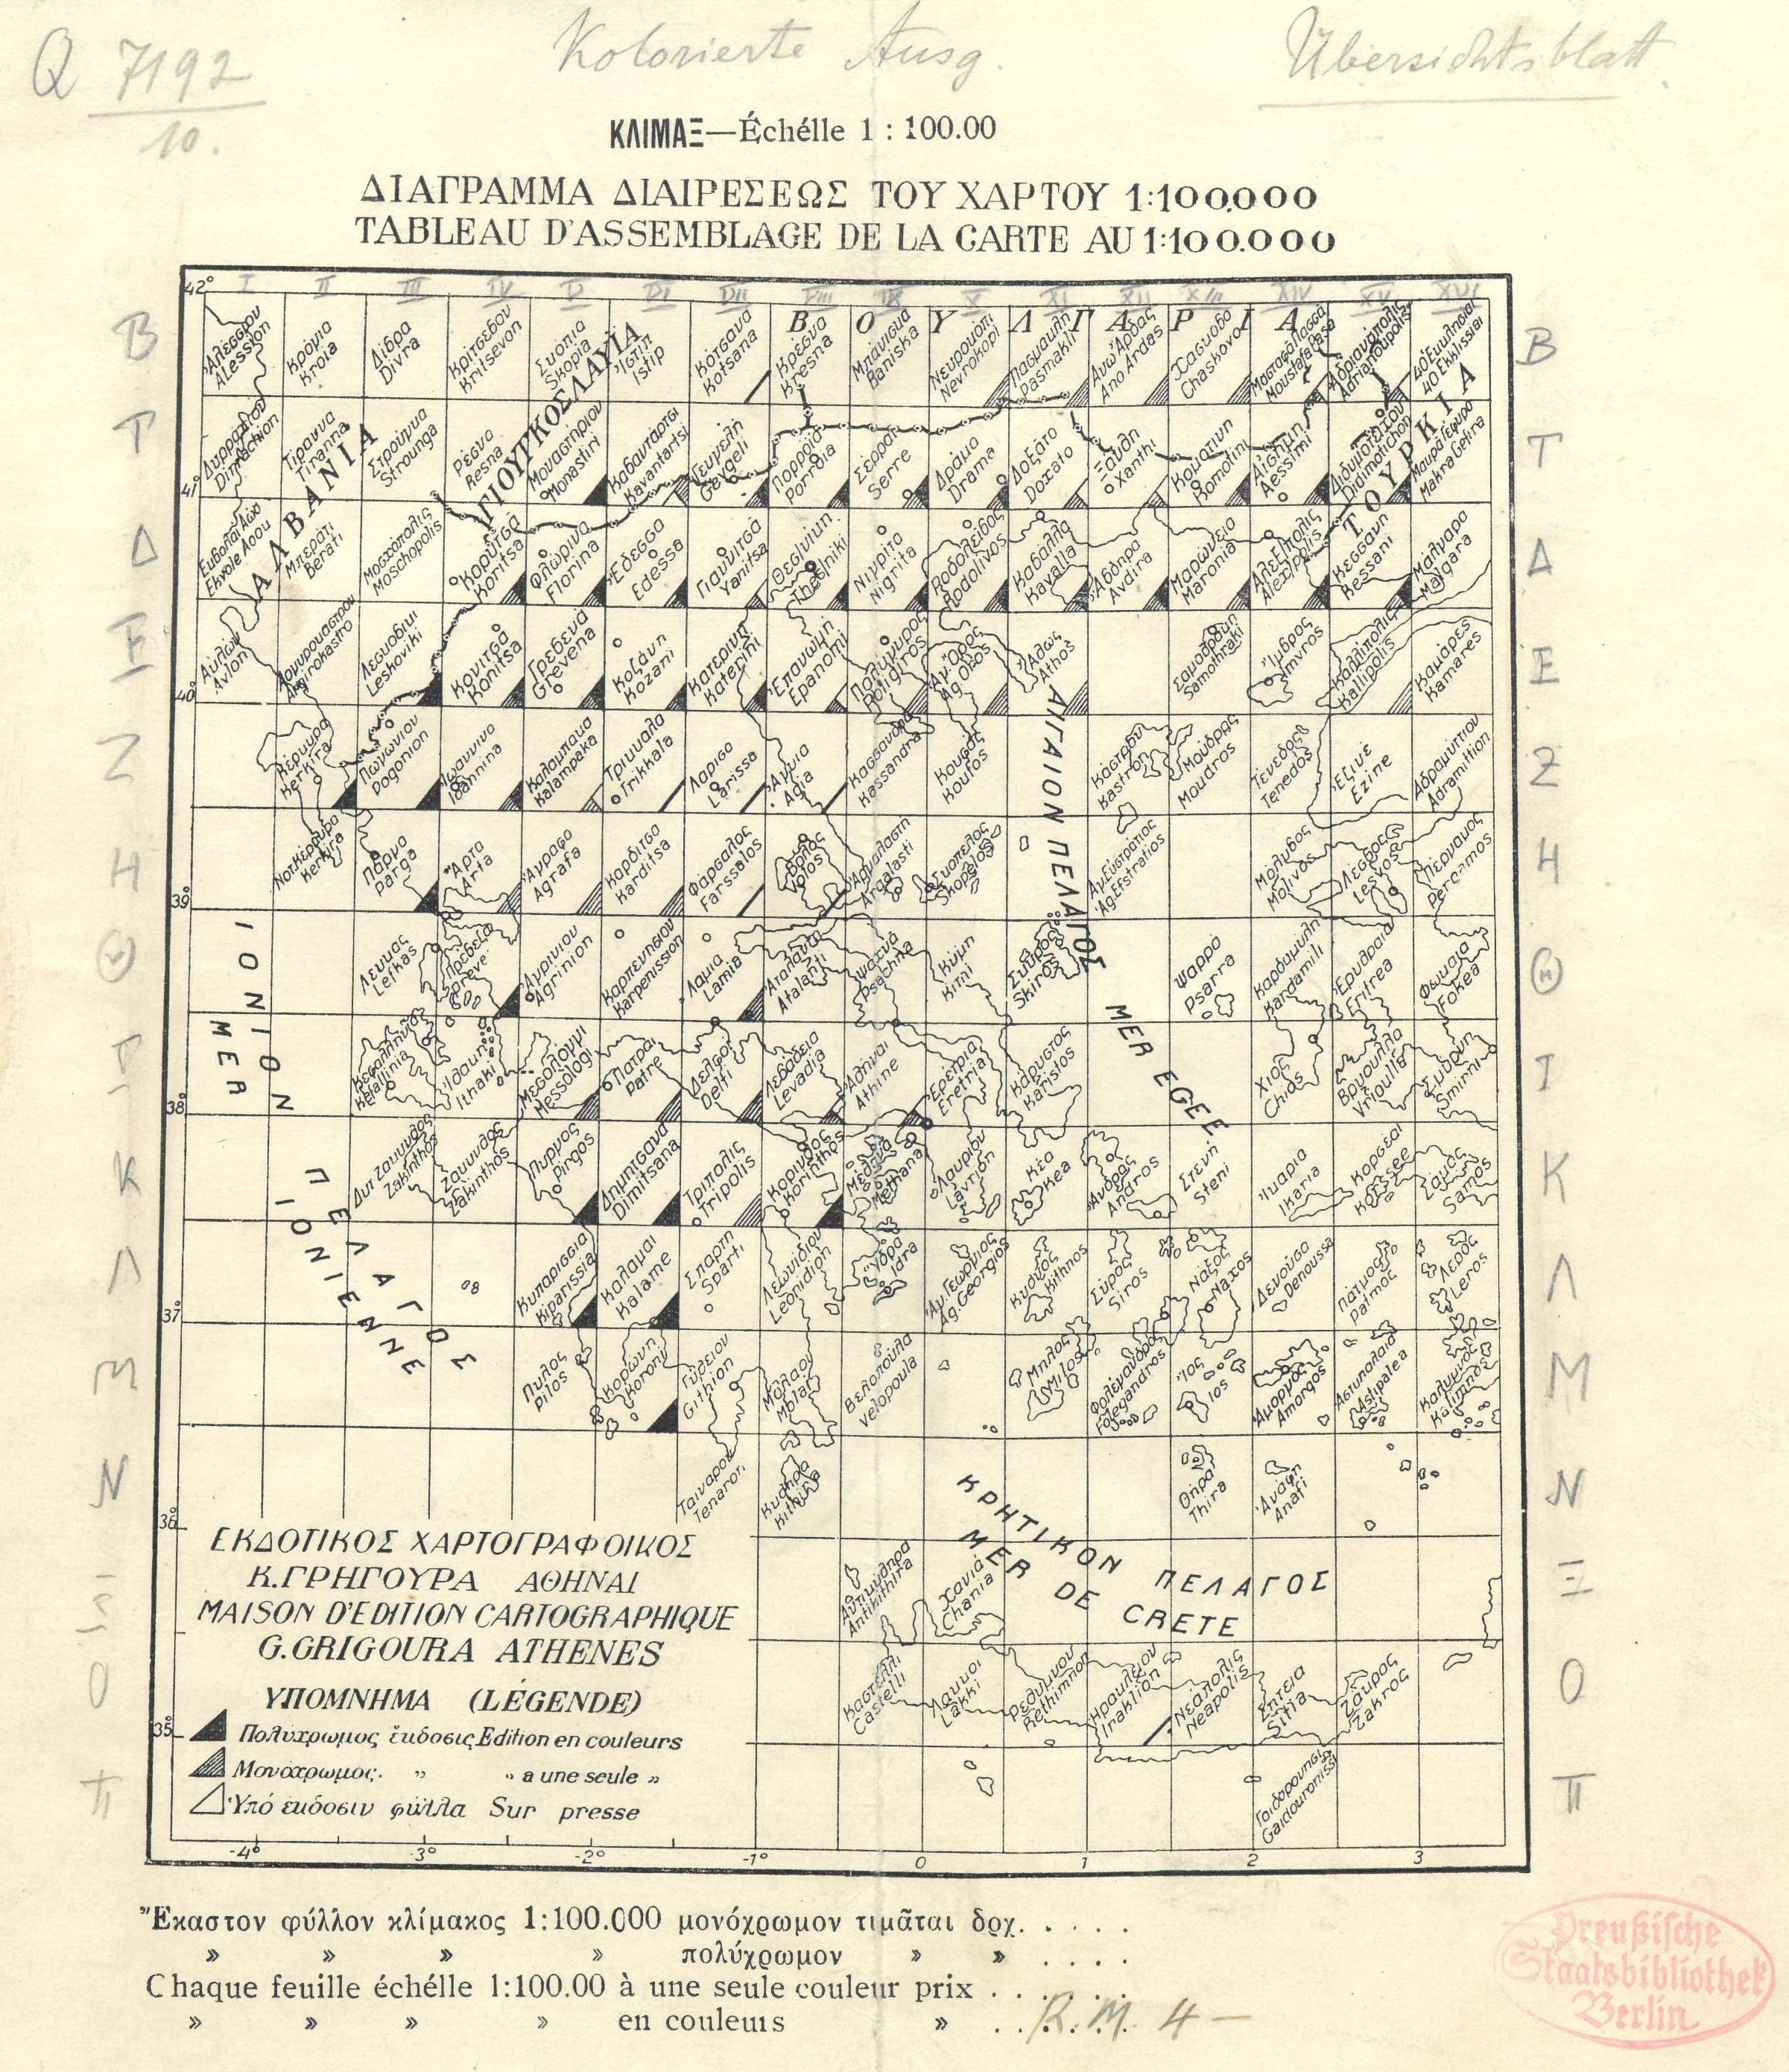 Q 7192
10.
Kolorierte Ausg.
Übersichtsblatt
ΚΛΙΜΑΞ—Échélle 1 : 100.00
ΔΙΑΓΡΑΜΜΑ ΔΙΑΙΡΕΣΕΩΣ ΤΟΥ ΧΑΡΤΟΥ 1:100.000
TABLEAU D'ASSEMBLAGE DE LA CARTE AU 1:100.000
42°
I II III IV V VI VII VIII IX X XI XII XIII XIV XV XVI
ΒΟΥΛΓΑΡΙΑ
ΓΙΟΥΓΚΟΣΛΑΥΪΑ
ΑΛΒΑΝΙΑ
ΤΟΥΡΚΙΑ
Β
Ἀλέσσιου Alession
Κρόγια Kroia
Δίβρα Divra
Κρίτσεβου Kritsevon
Σκοπια Skopia
Ἰστίπ Istip
Κότσανα Kotsana
Κρέσνα Kresna
Μπάνισκα Baniska
Νευροκόπι Nevrokopi
Πασμακλῆ Pasmakli
Ἄνω Ἄρδας Ano Ardas
Χάσκοβο Chaskovo
Μουσταφᾶ Πασσᾶ Moustafa Passa
Ἀδριανούπολις Adrianoupolis
40 Ἐκκλησίαι 40 Ekklissiai
Β
Γ
Δυρράχιον Dirrachion
Τίραννα Tiranna
Στρούγγα Strounga
Ρέσνα Resna
Μοναστήριον Monastiri
Καβαντάρτσι Kavantartsi
Γευγελῆ Gevgeli
Πορρόϊα Porroia
Σέρραι Serre
Δράμα Drama
Δοξάτο Doxato
Ξάνθη Xanthi
Κομοτινη Komotini
Αἴσήμη Aessimi
Διδυμότειχον Didimotichon
Μακρά Γέφυρα Makra Gefira
41°
Δ
Ἐκβολαὶ Ἀώου Ekvole Aoou
Μπεράτι Berati
Μοσχόπολις Moschopolis
Κορυτσᾶ Koritsa
Φλώρινα Florina
Ἔδεσσα Edessa
Γιαννιτσά Yanitsa
Θεσ/νίκη Thes/niki
Νιγρίτα Nigrita
Ροδολεῖβος Rodolivos
Καβάλλα Kavalla
Ἄβδηρα Avdira
Μαρώνεια Maronia
Ἀλεξ/πολις Alex/polis
Κεσσάνη Kessani
Μάλγαρα Malgara
Δ
Ε
Αὐλών Avlon
Ἀργυρόκαστρον Argirokastro
Λεσκοβίκι Leskoviki
Κόνιτσα Konitsa
Γρεβενά Grevena
Κοζάνη Kozani
Κατερίνη Katerini
Ἐπανωμή Epanomi
Πολύγυρος Poligiros
Ἅγ. Ὄρος Ag. Oros
Ἄθως Athos
Σαμοθράκη Samothraki
Ἴμβρος Imvros
Καλλίπολις Kallipolis
Καμάρες Kamares
Ε
40°
Ζ
Κέρκυρα Kerkira
Πωγώνιον Pogonion
Ἰωάννινα Ioannina
Καλαμπάκα Kalampaka
Τρίκκαλα Trikkala
Λάρισα Larissa
Ἀγιά Agia
Κασσάνδρα Kassandra
Κουφός Koufos
Κάστρον Kastron
Μούδρος Moudros
Τένεδος Tenedos
Ἐζινέ Ezine
Ἀδραμύττιον Adramittion
Ζ
ΑΙΓΑΙΟΝ ΠΕΛΑΓΟΣ
Η
Νοτ. Κέρκυρα Kerkira
Πάργα Parga
Ἄρτα Arta
Ἄγραφα Agrafa
Καρδίτσα Karditsa
Φάρσαλος Farssalos
Βόλος Volos
Ἀργαλαστή Argalasti
Σκόπελος Skopelos
Ἅγ. Εὐστράτιος Ag. Efstratios
Μόλυβος Molivos
Λέσβος Lesvos
Πέργαμος Pergamos
Η
39°
Θ
Λευκάς Lefkas
Πρέβεζα Preveza
Ἀγρίνιου Agrinion
Καρπενησιου Karpenission
Λαμία Lamia
Ἀταλάντη Atalanti
Ψαχνά Psachna
Κύμη Kimi
Σκύρος Skiros
Ψαρρά Psarra
Καρδάμυλη Kardamili
Ἐρυθραία Eritrea
Φώκαια Fokea
Θ
ΙΟΝΙΟΝ ΠΕΛΑΓΟΣ
MER IONIENNE
MER EGEE
Ι
Κεφαλληνία Kefallinia
Ἰθάκη Ithaki
Μεσολόγγι Messologi
Πάτραι Patre
Δελφοί Delfi
Λεβάδεια Levadia
Ἀθῆναι Athine
Ἐρέτρια Eretria
Κάρυστος Karistos
Χίος Chios
Βρύουλλα Vrioulla
Σμύρνη Smirni
Ι
38°
Κ
Δυτ. Ζάκυνθος Zakinthos
Ζάκυνθος Zakinthos
Πύργος Pirgos
Δημητσάνα Dimitsana
Τρίπολις Tripolis
Κόρινθος Korinthos
Μέθανα Methana
Λαύριον Lavrion
Κέα Kea
Ἄνδρος Andros
Στενή Steni
Ἰκαρία Ikaria
Κορσέαι Korsee
Σάμος Samos
Κ
Λ
Κυπαρισσία Kiparissia
Καλάμαι Kalame
Σπάρτη Sparti
Λεωνίδιον Leonidion
Ὕδρα Idra
Ἅγ. Γεώργιος Ag. Georgios
Κύθνος Kithnos
Σῦρος Siros
Νάξος Naxos
Δενούσα Denoussa
Πάτμος Patmos
Λέρος Leros
Λ
37°
Μ
Πύλος Pilos
Κορώνη Koroni
Γύθειον Githion
Μολάοι Molai
Βελοπούλα Velopoula
Μῆλος Milos
Φολέγανδρος Folegandros
Ἴος Ios
Ἀμοργός Amorgos
Ἀστυπάλαια Astipalea
Κάλυμνος Kalimnos
Μ
Ν
Ταίναρον Tenaron
Κύθηρα Kithira
Θήρα Thira
Ἀνάφη Anafi
Ν
36°
ΚΡΗΤΙΚΟΝ ΠΕΛΑΓΟΣ
MER DE CRETE
Ξ
Ἀντικύθηρα Antikithira
Χανιά Chania
Ξ
Ο
Καστέλλι Castelli
Λάκκοι Lakki
Ρέθυμνον Rethimnon
Ἡράκλειον Iraklion
Νεάπολις Neapolis
Σητεία Sitia
Ζάκρος Zakros
Ο
35°
Π
Γαϊδουρονήσι Gaidouronissi
Π
ΕΚΔΟΤΙΚΟΣ ΧΑΡΤΟΓΡΑΦ ΟΙΚΟΣ
Κ.ΓΡΗΓΟΥΡΑ ΑΘΗΝΑΙ
MAISON D'EDITION CARTOGRAPHIQUE
G.GRIGOURA ATHENES
ΥΠΟΜΝΗΜΑ (LÉGENDE)
Πολύχρωμος ἔκδοσις Edition en couleurs
Μονόχρωμος. " " a une seule "
Ὑπό ἔκδοσιν φύλλα Sur presse
-4° -3° -2° -1° 0 1 2 3
Ἕκαστον φύλλον κλίμακος 1:100.000 μονόχρωμον τιμᾶται δρχ. . . . .
» » » » πολύχρωμον » » . . . .
Chaque feuille échélle 1:100.00 à une seule couleur prix . . . . . .
» » » » en couleurs » . . . . . . R.M. 4 —
Preußische
Staatsbibliothek
Berlin.